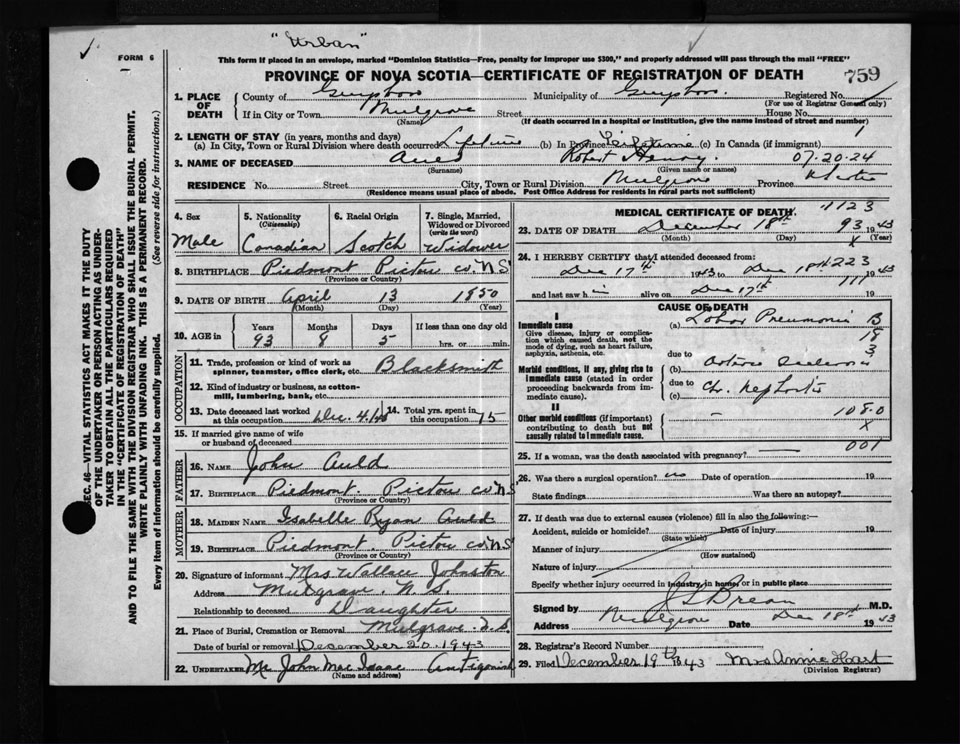 "Urban"
FORM 6
This form if placed in an envelope, marked "Dominion Statistics—Free, penalty for improper use $300," and properly addressed will pass through the mail "FREE"
PROVINCE OF NOVA SCOTIA—CERTIFICATE OF REGISTRATION OF DEATH
759
SEC. 46—VITAL STATISTICS ACT MAKES IT THE DUTY
OF THE UNDERTAKER OR PERSON ACTING AS UNDER-
TAKER TO OBTAIN ALL THE PARTICULARS REQUIRED
IN THE "CERTIFICATE OF REGISTRATION OF DEATH"
AND TO FILE THE SAME WITH THE DIVISION REGISTRAR WHO SHALL ISSUE THE BURIAL PERMIT.
WRITE PLAINLY WITH UNFADING INK. THIS IS A PERMANENT RECORD.
Every item of information should be carefully supplied. (See reverse side for instructions.)
1. PLACE OF DEATH County of Guysboro Municipality of Guysboro Registered No.
(For use of Registrar General only)
If in City or Town Mulgrave Street House No.
(Name) (If death occurred in a hospital or institution, give the name instead of street and number)
2. LENGTH OF STAY (in years, months and days)
(a) In City, Town or Rural Division where death occurred Lifetime (b) In Province Lifetime (c) In Canada (if immigrant)
3. NAME OF DECEASED Robert Henry 07-20-24
(Surname) (Given name or names)
RESIDENCE No. Street City, Town or Rural Division Mulgrave Province N Scotia
(Residence means usual place of abode. Post Office Address for residents in rural parts not sufficient)
4. Sex
Male
5. Nationality
(Citizenship)
Canadian
6. Racial Origin
Scotch
7. Single, Married, Widowed or Divorced
(write the word)
Widower
8. BIRTHPLACE Piedmont Pictou co. NS
(Province or Country)
9. DATE OF BIRTH April 13 1850
(Month) (Day) (Year)
10. AGE in Years Months Days If less than one day old
93 8 5 hrs. or min.
OCCUPATION
11. Trade, profession or kind of work as
spinner, teamster, office clerk, etc. Blacksmith
12. Kind of industry or business, as cotton-
mill, lumbering, bank, etc.
13. Date deceased last worked at this occupation Dec. 4
14. Total yrs. spent in this occupation 75
15. If married give name of wife
or husband of deceased
FATHER
16. NAME John Auld
17. BIRTHPLACE Piedmont. Pictou co. NS
(Province or Country)
MOTHER
18. MAIDEN NAME Isabelle Ryan Auld
19. BIRTHPLACE Piedmont. Pictou co. NS
(Province or Country)
20. Signature of informant Mrs Wallace Johnston
Address Mulgrave. N.S.
Relationship to deceased Daughter
21. Place of Burial, Cremation or Removal Mulgrave N.S.
Date of burial or removal December 20. 1943
22. UNDERTAKER Mr. John Mac Isaac Antigonish
(Name and address)
MEDICAL CERTIFICATE OF DEATH
1123
23. DATE OF DEATH December 18th 93 1943
(Month) (Day) X (Year)
24. I HEREBY CERTIFY that I attended deceased from:
Dec 17th 1943 to Dec 18th 223 1943
and last saw h im alive on Dec 17th 111 19
CAUSE OF DEATH
I
Immediate cause
Give disease, injury or complica-
tion which caused death, not the
mode of dying, such as heart failure,
asphyxia, asthenia, etc.
(a) Lobar Pneumonia B
18
3
due to
Morbid conditions, if any, giving rise to
immediate cause (stated in order
proceeding backwards from im-
mediate cause).
(b)
due to
(c) Ch. Nephritis
II
Other morbid conditions (if important)
contributing to death but not
causally related to immediate cause.
—
108.0
X
25. If a woman, was the death associated with pregnancy? — 001
26. Was there a surgical operation? no Date of operation 19
State findings Was there an autopsy?
27. If death was due to external causes (violence) fill in also the following:—
Accident, suicide or homicide? Date of injury 19
(State which)
Manner of injury
(How sustained)
Nature of injury
Specify whether injury occurred in industry, in home, or in public place
Signed by M.D.
Address Mulgrave Date Dec 18th 1943
28. Registrar's Record Number
29. Filed December 19th 1943 Mrs Annie Hart
(Division Registrar)